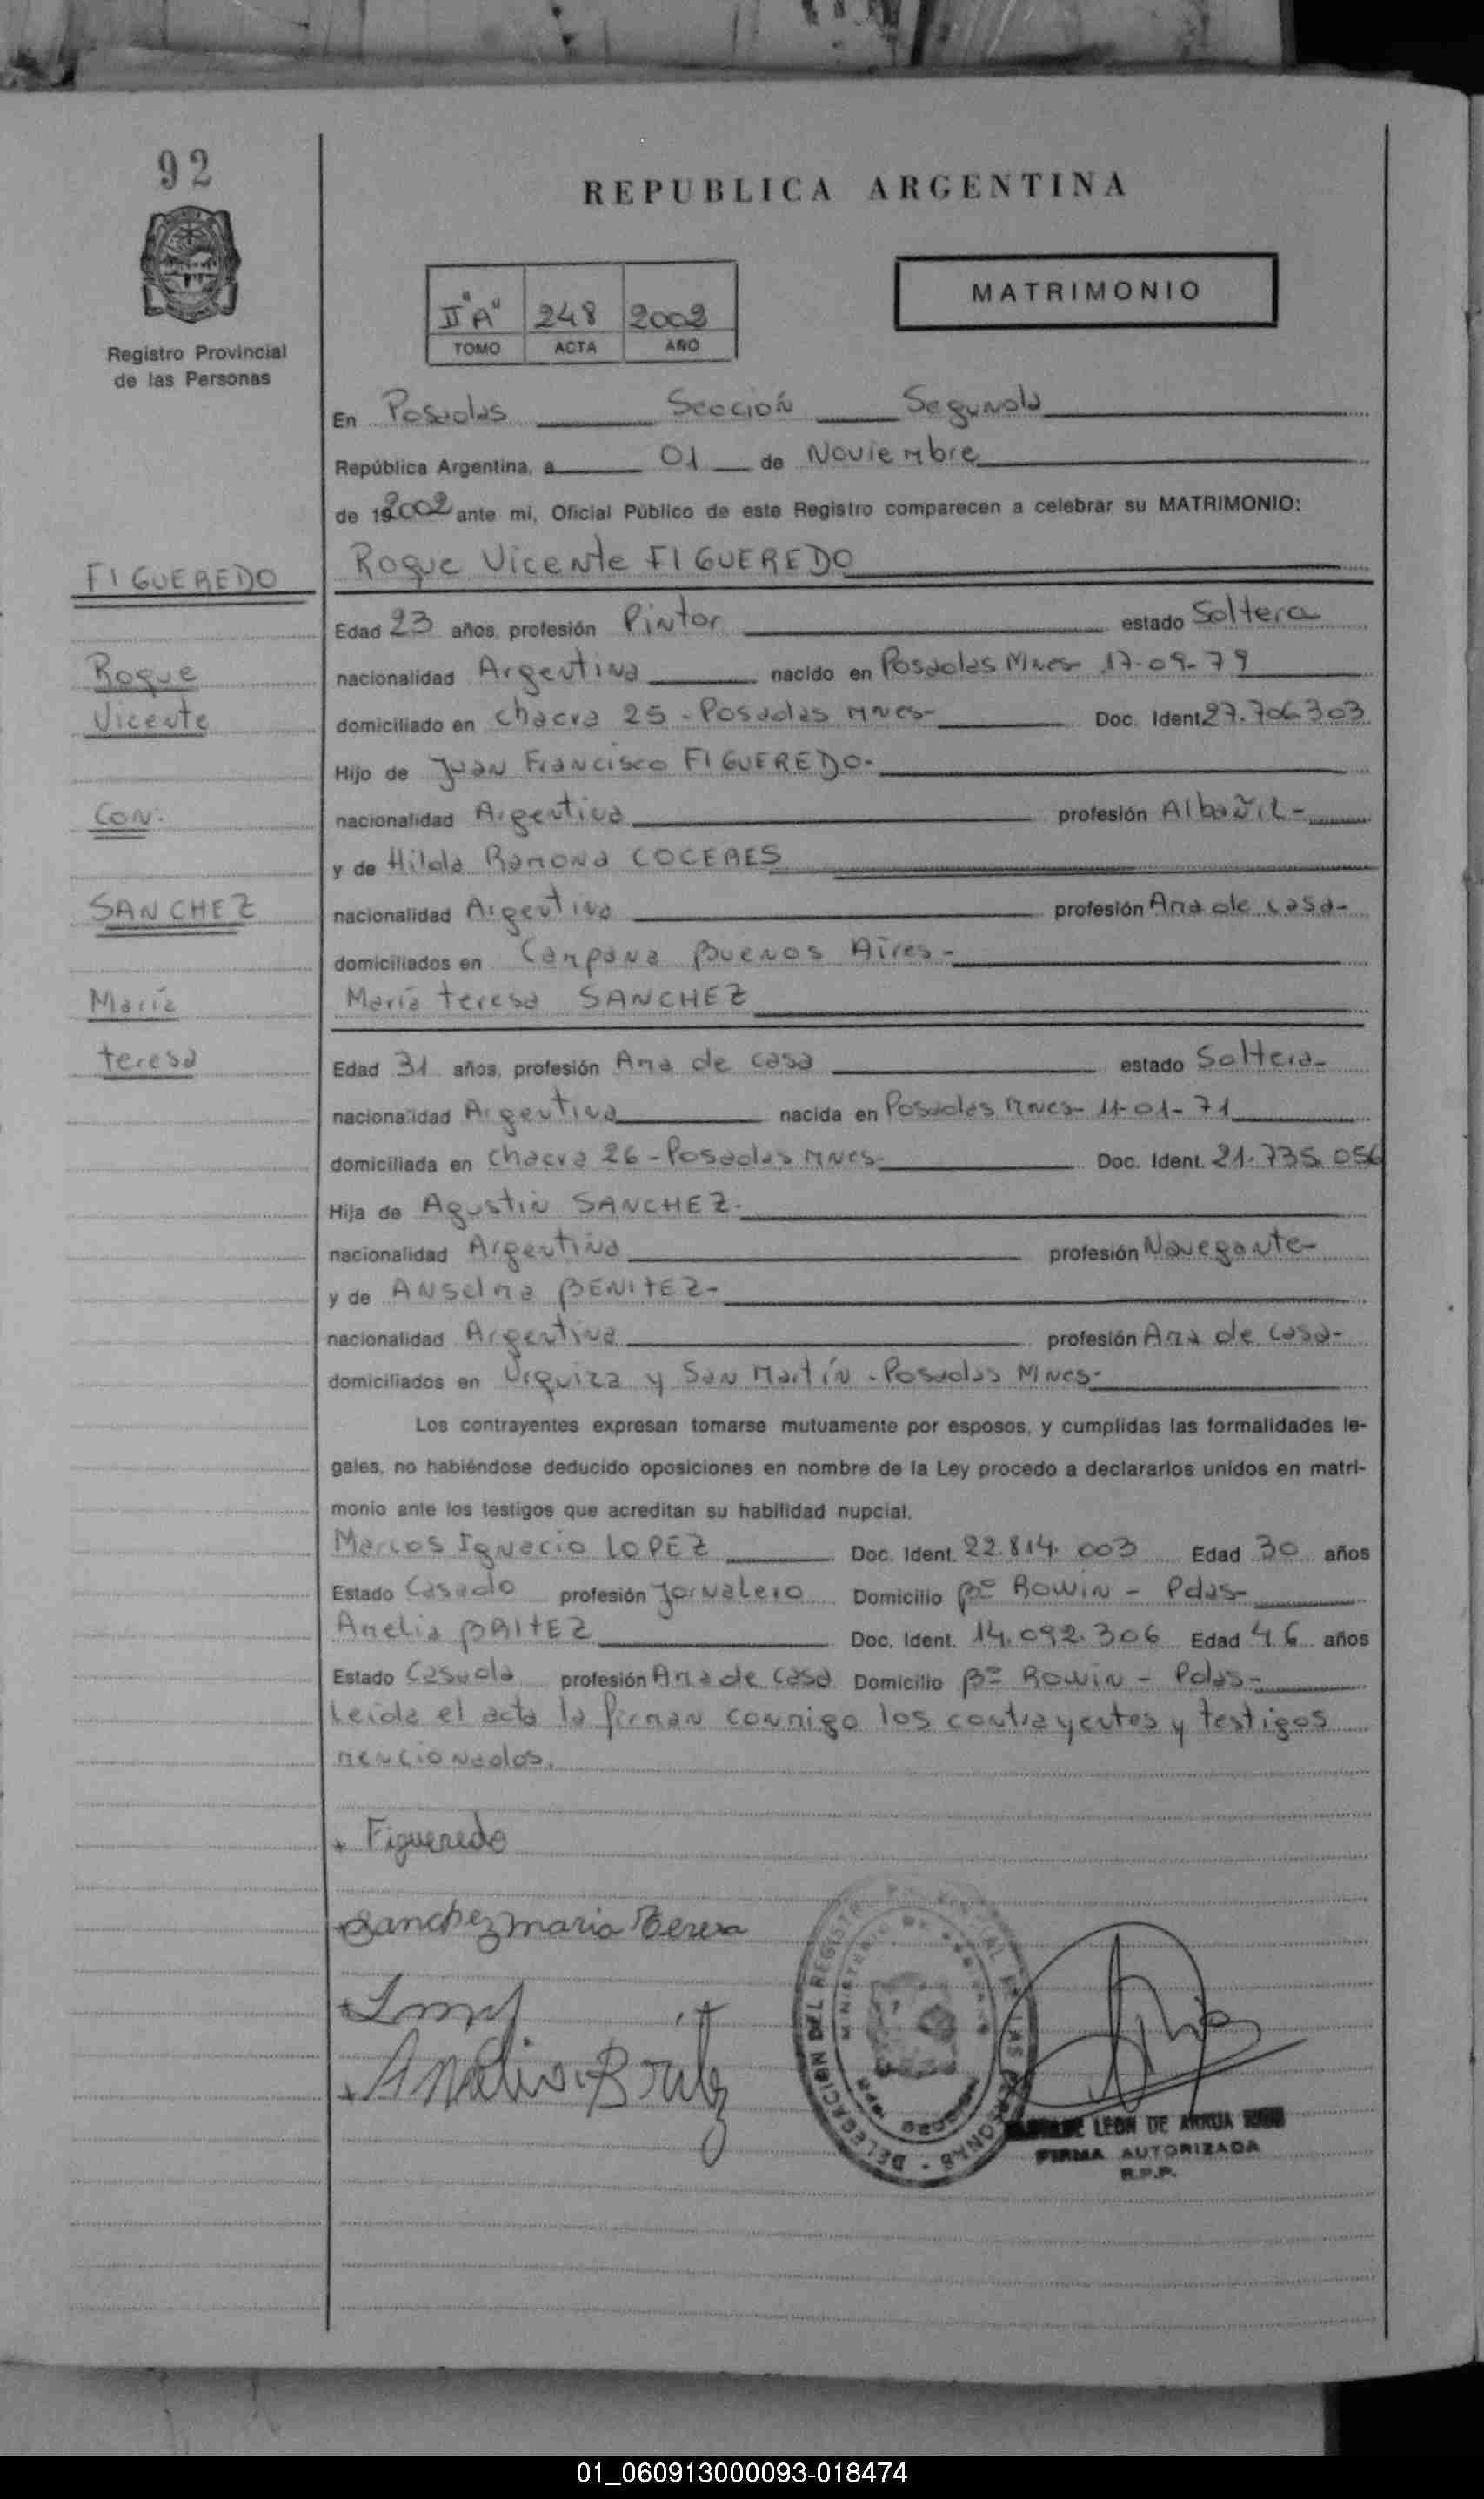 92
REPUBLICA ARGENTINA
MATRIMONIO
II "A" 248 2002
TOMO ACTA AÑO
Registro Provincial
de las Personas
En Posadas Sección Segunda
República Argentina, a 01 de Noviembre
de 192002 ante mi, Oficial Público de este Registro comparecen a celebrar su MATRIMONIO:
FIGUEREDO
Roque Vicente FIGUEREDO
Edad 23 años, profesión Pintor estado Soltera
Roque
nacionalidad Argentina nacido en Posadas Mnes- 17-09-79
Vicente
domiciliado en Chacra 25 - Posadas Mnes- Doc. Ident. 27.706.303
Hijo de Juan Francisco FIGUEREDO-
Con:
nacionalidad Argentina profesión Albañil-
y de Hilda Ramona COCERES
SANCHEZ
nacionalidad Argentina profesión Ama de casa-
domiciliados en Campana Buenos Aires-
María
María teresa SANCHEZ
teresa
Edad 31 años, profesión Ama de casa estado Soltera-
nacionalidad Argentina nacida en Posadas Mnes- 11-01-71
domiciliada en Chacra 26 - Posadas Mnes- Doc. Ident. 21.735.056
Hija de Agustín SANCHEZ-
nacionalidad Argentina profesión Navegante-
y de Anselma BENITEZ-
nacionalidad Argentina profesión Ama de casa-
domiciliados en Urquiza y San Martín - Posadas Mnes-
Los contrayentes expresan tomarse mutuamente por esposos, y cumplidas las formalidades le-
gales, no habiéndose deducido oposiciones en nombre de la Ley procedo a declararlos unidos en matri-
monio ante los testigos que acreditan su habilidad nupcial.
Marcos Ignacio LOPEZ Doc. Ident. 22.814.003 Edad 30 años
Estado Casado profesión Jornalero Domicilio Bº Rowin - Pdas-
Amelia BRITEZ Doc. Ident. 14.092.306 Edad 46 años
Estado Casada profesión Ama de casa Domicilio Bº Rowin - Pdas-
Leída el acta la firman conmigo los contrayentes y testigos
mencionados.
Figueredo
Sanchez maria Teresa
Amelia Britez
DELEGACION DEL REGISTRO PROVINCIAL DE LAS PERSONAS
LEON DE ARRUA
FIRMA AUTORIZADA
R.P.P.
01_060913000093-018474